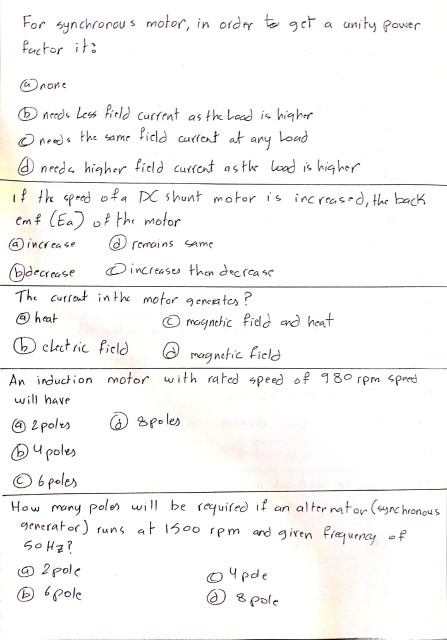 For synchronous motor, in order to get a unity power
factor it:
(a) none
(b) needs less field current as the load is higher
(c) needs the same field current at any load
(d) needs higher field current as the load is higher
If the speed of a DC shunt motor is increased, the back
emf (Ea) of the motor
(a) increase (d) remains same
(b) decrease (c) increases then decrease
The current in the motor generates?
(a) heat (c) magnetic field and heat
(b) electric field (d) magnetic field
An induction motor with rated speed of 980 rpm speed
will have
(a) 2 poles (d) 8 poles
(b) 4 poles
(c) 6 poles
How many poles will be required if an alternator (synchronous
generator) runs at 1500 rpm and given frequency of
50 Hz?
(a) 2 pole (c) 4 pole
(b) 6 pole (d) 8 pole